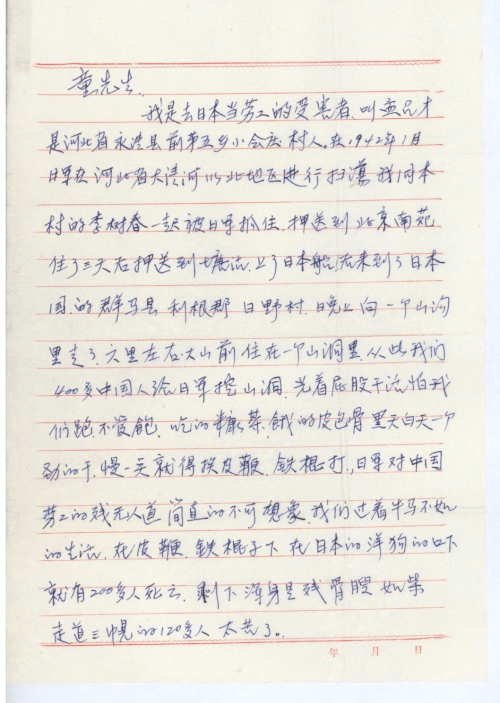 童先生.
我是去日本当劳工的受害者.叫孟品才
是河北省永清县前第五乡小会庄村人.在1942年1月
日军在河北省大清河以北地区进行扫荡.我同本
村的李树春一起被日军抓住.押送到北京南苑
住了三天后押送到塘沽.上了日本船后来到了日本
国.的群马县 利根郡 日野村.日晚上向一个山沟
里走了.六里左右.大山前住在一个山洞里从此我们
400多中国人给日军挖山洞.光着屁股干活怕我
们跑.不管饱.吃的糠菜.饿的皮包骨黑天白天一个
劲的干.慢一点就得挨皮鞭.铁棍打.,日军对中国
劳工的残无人道简直的不可想象.我们过着牛马不如
的生活.在皮鞭.铁棍子下 在日本的洋狗的口下
就有200多人死亡.剩下浑身是残骨瘦如柴
走道三晃的120多人 太苦了。
年 月 日